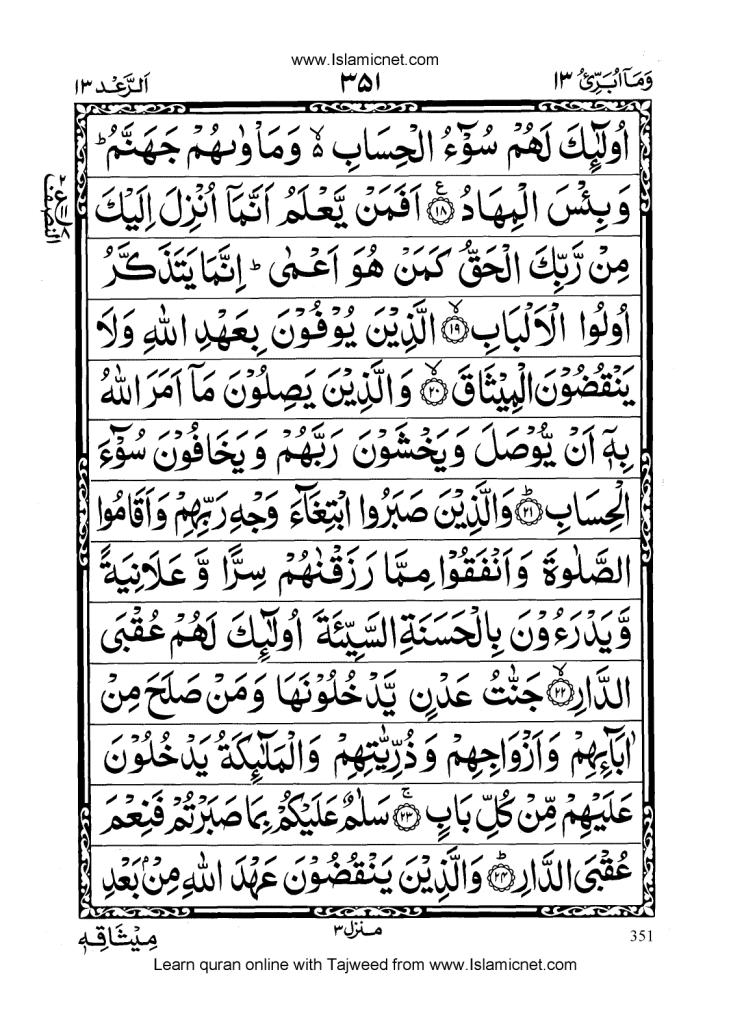 www.Islamicnet.com
وَمَاۤ اُبَرِّئُ ۱۳
۳۵۱
اَلرَّعْد ۱۳
اُولٰٓئِكَ لَهُمْ سُوْٓءُ الْحِسَابِ ۙ۬ وَمَاْوٰىهُمْ جَهَنَّمُ ؕ
وَبِئْسَ الْمِهَادُ ﴿۱۸﴾ ع اَفَمَنْ يَّعْلَمُ اَنَّمَاۤ اُنْزِلَ اِلَيْكَ
مِنْ رَّبِّكَ الْحَقُّ كَمَنْ هُوَ اَعْمٰى ؕ اِنَّمَا يَتَذَكَّرُ
اُولُوا الْاَلْبَابِ ﴿۱۹﴾ ۙ الَّذِيْنَ يُوْفُوْنَ بِعَهْدِ اللّٰهِ وَلَا
يَنْقُضُوْنَ الْمِيْثَاقَ ﴿۲۰﴾ ۙ وَالَّذِيْنَ يَصِلُوْنَ مَاۤ اَمَرَ اللّٰهُ
بِهٖۤ اَنْ يُّوْصَلَ وَيَخْشَوْنَ رَبَّهُمْ وَيَخَافُوْنَ سُوْٓءَ
الْحِسَابِ ﴿۲۱﴾ ؕ وَالَّذِيْنَ صَبَرُوا ابْتِغَآءَ وَجْهِ رَبِّهِمْ وَاَقَامُوا
الصَّلٰوةَ وَاَنْفَقُوْا مِمَّا رَزَقْنٰهُمْ سِرًّا وَّعَلَانِيَةً
وَّيَدْرَءُوْنَ بِالْحَسَنَةِ السَّيِّئَةَ اُولٰٓئِكَ لَهُمْ عُقْبَى
الدَّارِ ﴿۲۲﴾ ۙ جَنّٰتُ عَدْنٍ يَّدْخُلُوْنَهَا وَمَنْ صَلَحَ مِنْ
اٰبَآئِهِمْ وَاَزْوَاجِهِمْ وَذُرِّيّٰتِهِمْ وَالْمَلٰٓئِكَةُ يَدْخُلُوْنَ
عَلَيْهِمْ مِّنْ كُلِّ بَابٍ ﴿۲۳﴾ ۚ سَلٰمٌ عَلَيْكُمْ بِمَا صَبَرْتُمْ فَنِعْمَ
عُقْبَى الدَّارِ ﴿۲۴﴾ ؕ وَالَّذِيْنَ يَنْقُضُوْنَ عَهْدَ اللّٰهِ مِنْۢ بَعْدِ
351
منزل ۳
مِيْثَاقِهٖ
Learn quran online with Tajweed from www.Islamicnet.com